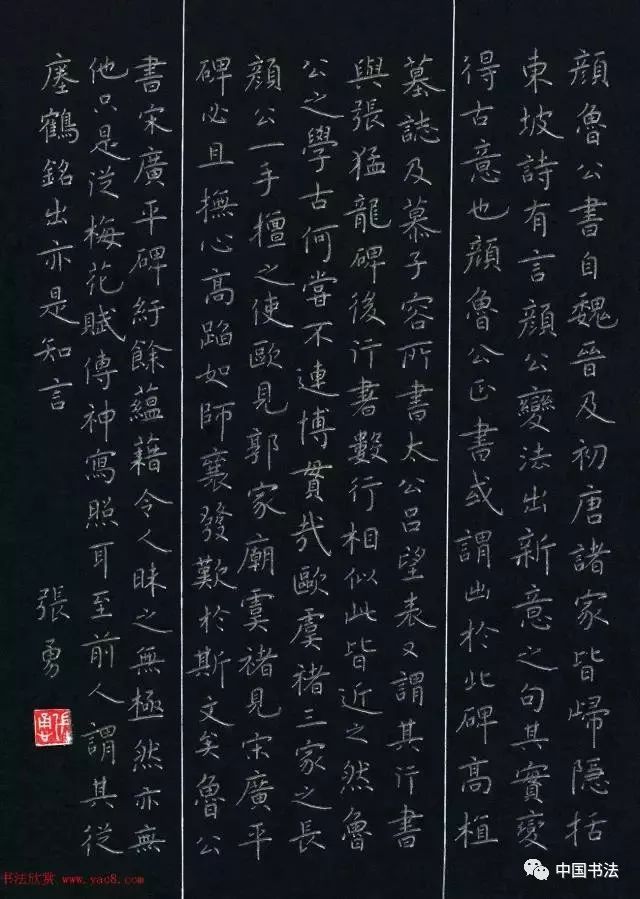 顏魯公書自魏晉及初唐諸家皆歸隱括
東坡詩有言顏公變法出新意之句其實變
得古意也顏魯公正書或謂出於此碑高植
墓誌及慕子容所書太公吕望表又謂其行書
與張猛龍碑後行書數行相似此皆近之然魯
公之學古何嘗不連博貫哉歐虞褚三家之長
顏公一手擅之使歐見郭家廟虞褚見宋廣平
碑必且撫心高蹈如師襄發歎於斯文矣魯公
書宋廣平碑紆餘蘊藉令人味之無極然亦無
他只是从梅花賦傳神寫照耳至前人謂其從
瘞鶴銘出亦是知言
張勇
书法欣赏 www.yac8.com
中国书法